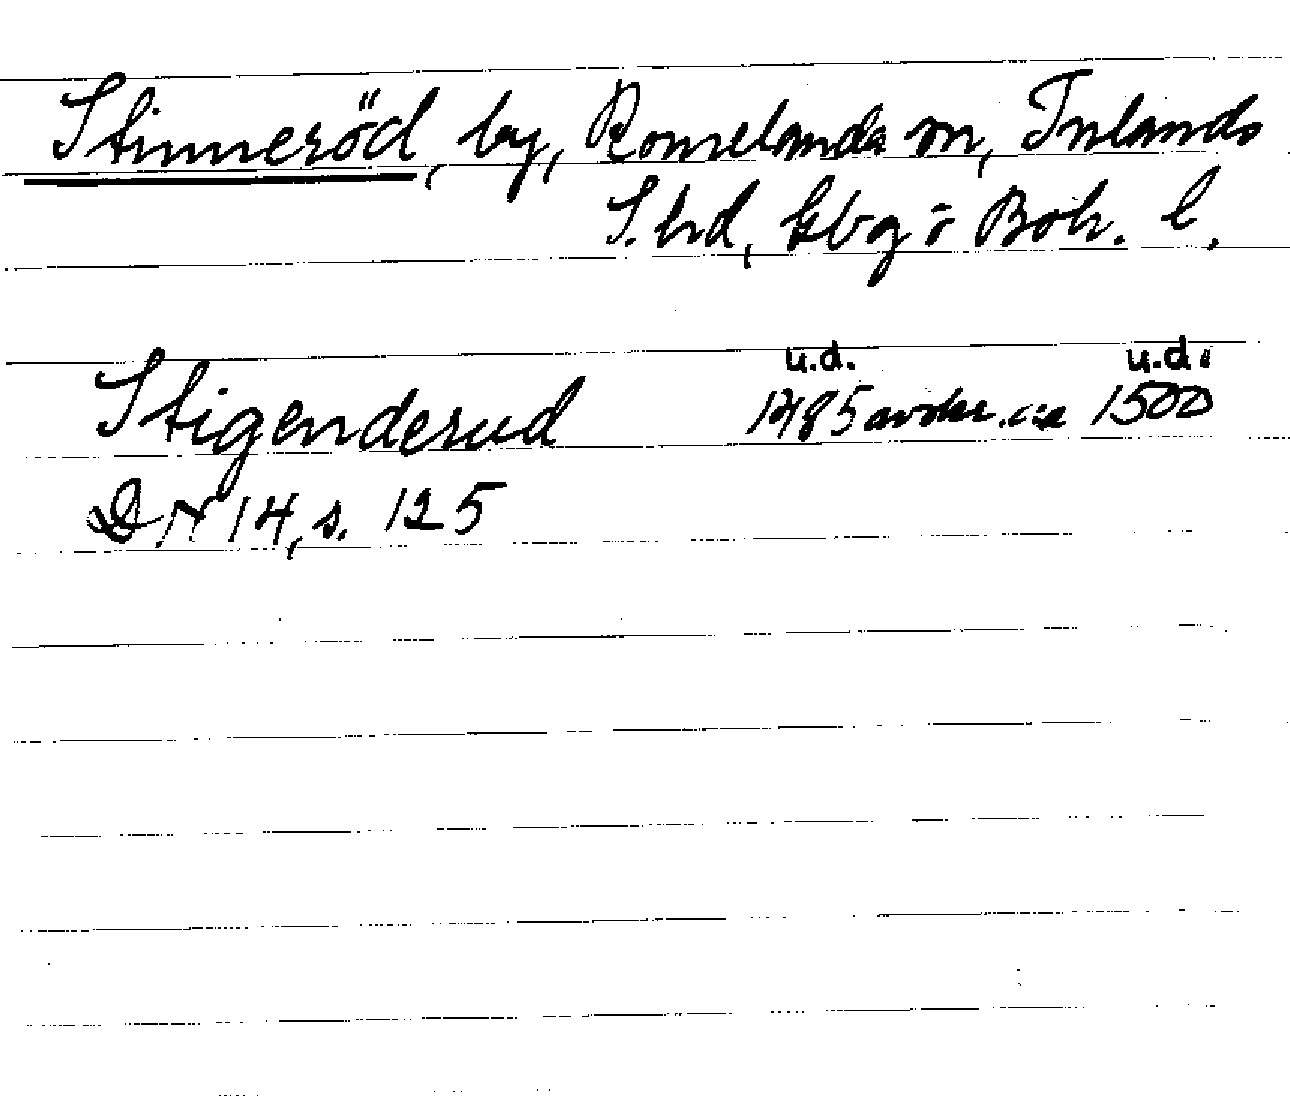 Stinneröd, by, Romelanda sn, Inlands
S. hd, Gbg o Boh. l.
u.d. u.d.
Stigenderud 1485 avskr. ca 1500
DN 14, s. 125